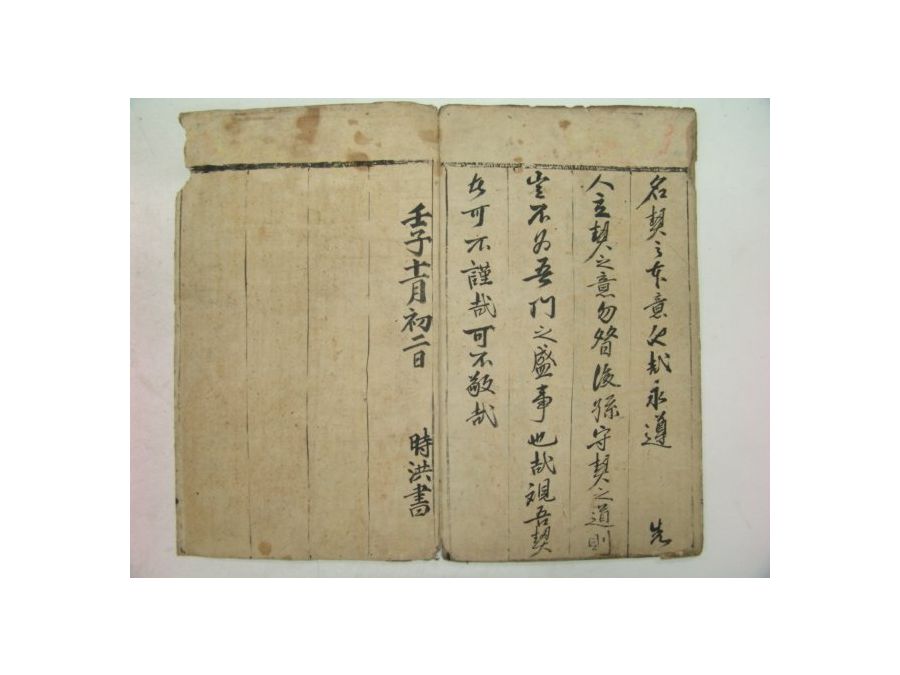 名契之本意也哉永遵 先
人立契之意勿替後孫守契之道則
豈不為吾門之盛事也哉觀吾契
者可不謹哉可不敬哉
壬子十一月初二日 時洪書